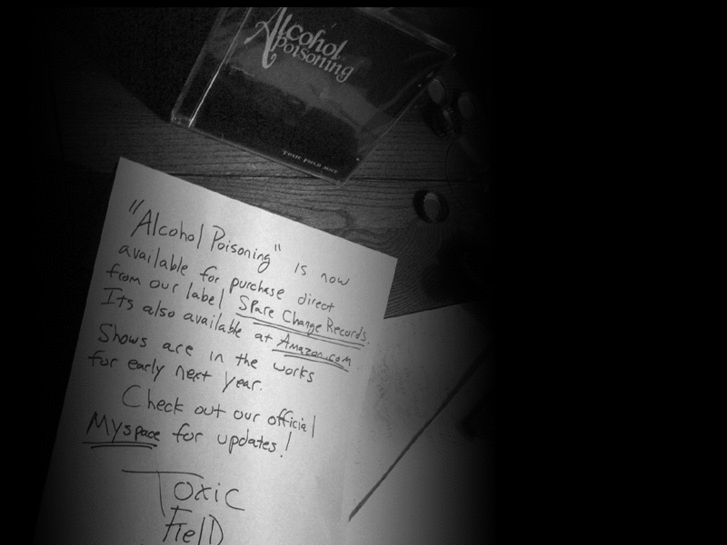 Alcohol
Poisoning
TOXIC FIELD MICE
"Alcohol Poisoning" is now
available for purchase direct
from our label Spare Change Records.
Its also available at Amazon.com
Shows are in the works
for early next year.
Check out our official
Myspace for updates!
Toxic
Field